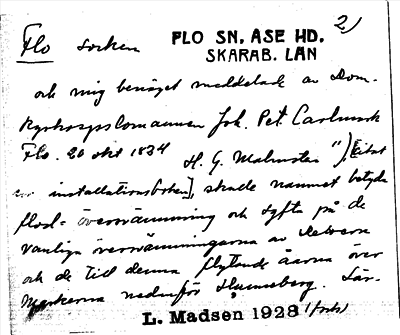 Flo socken FLO SN, ASE HD. 2)
SKARAB. LÄN
och mig benäget meddelade av Dom-
kyrkosysslomannen Joh. Pet. Carlmark
Flo. 20 okt 1834 H. G. Malmsten"), [citat
ur installationsboken], skude namnet betyda
flod = översvämning och syfta på de
vanliga översvämningarna av
och de till denna flytande åarna över
markerna nedanför Hunneberg. Där-
L. Madsen 1928 (forts)